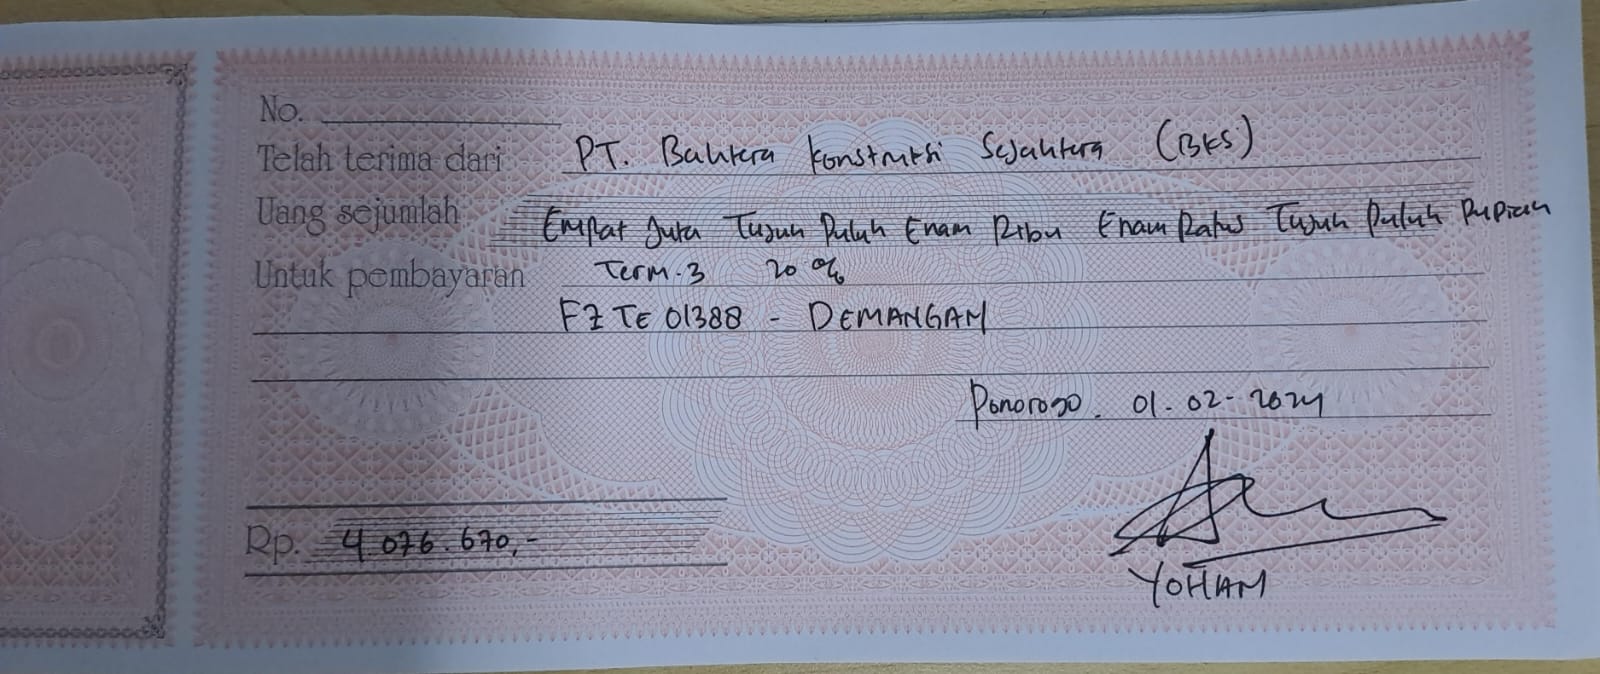 No.
Telah terima dari PT. Bahtera Konstruksi Sejahtera (BKS)
Uang sejumlah Empat Juta Tujuh Puluh Enam Ribu Enam Ratus Tujuh Puluh Rupiah
Untuk pembayaran Term.3 20 %
FZ TE 01388 - DEMANGAN
Ponorogo. 01-02-2024
Rp. 4.076.670,-
YOHAN